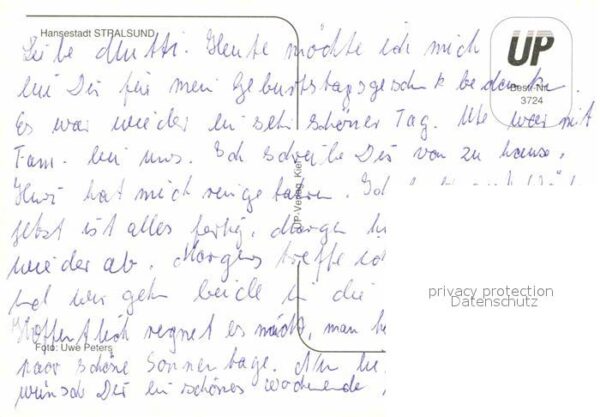 Hansestadt STRALSUND
Liebe Mutti. Heute möchte ich mich
bei Dir für mein Geburtstagsgeschenk bedanken.
Es war wieder ein sehr schöner Tag. Ute war mit
Fam. bei uns. Ich schreibe Dir von zu hause,
hat mich
jetzt ist alles fertig. Morgen
wieder ab. Morgens treffe ich
und wir gehn beide in die
Hoffentlich regnet es nicht, man
paar schöne Sonnentage. Nun
wünsch Dir ein schönes wochenende,
UP
Bestr-Nr.
3724
UP-Verlag, Kiel
Foto: Uwe Peters
privacy protection
Datenschutz